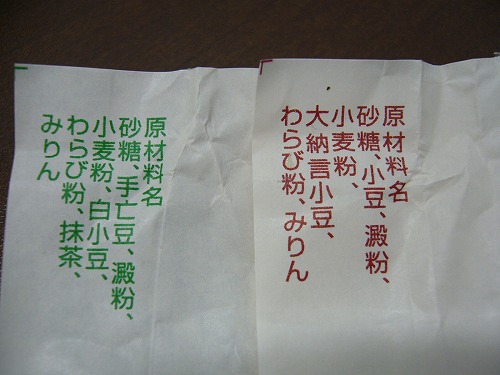 原材料名
砂糖、小豆、澱粉、
小麦粉、
大納言小豆、
わらび粉、みりん
原材料名
砂糖、手亡豆、澱粉、
小麦粉、白小豆、
わらび粉、抹茶、
みりん